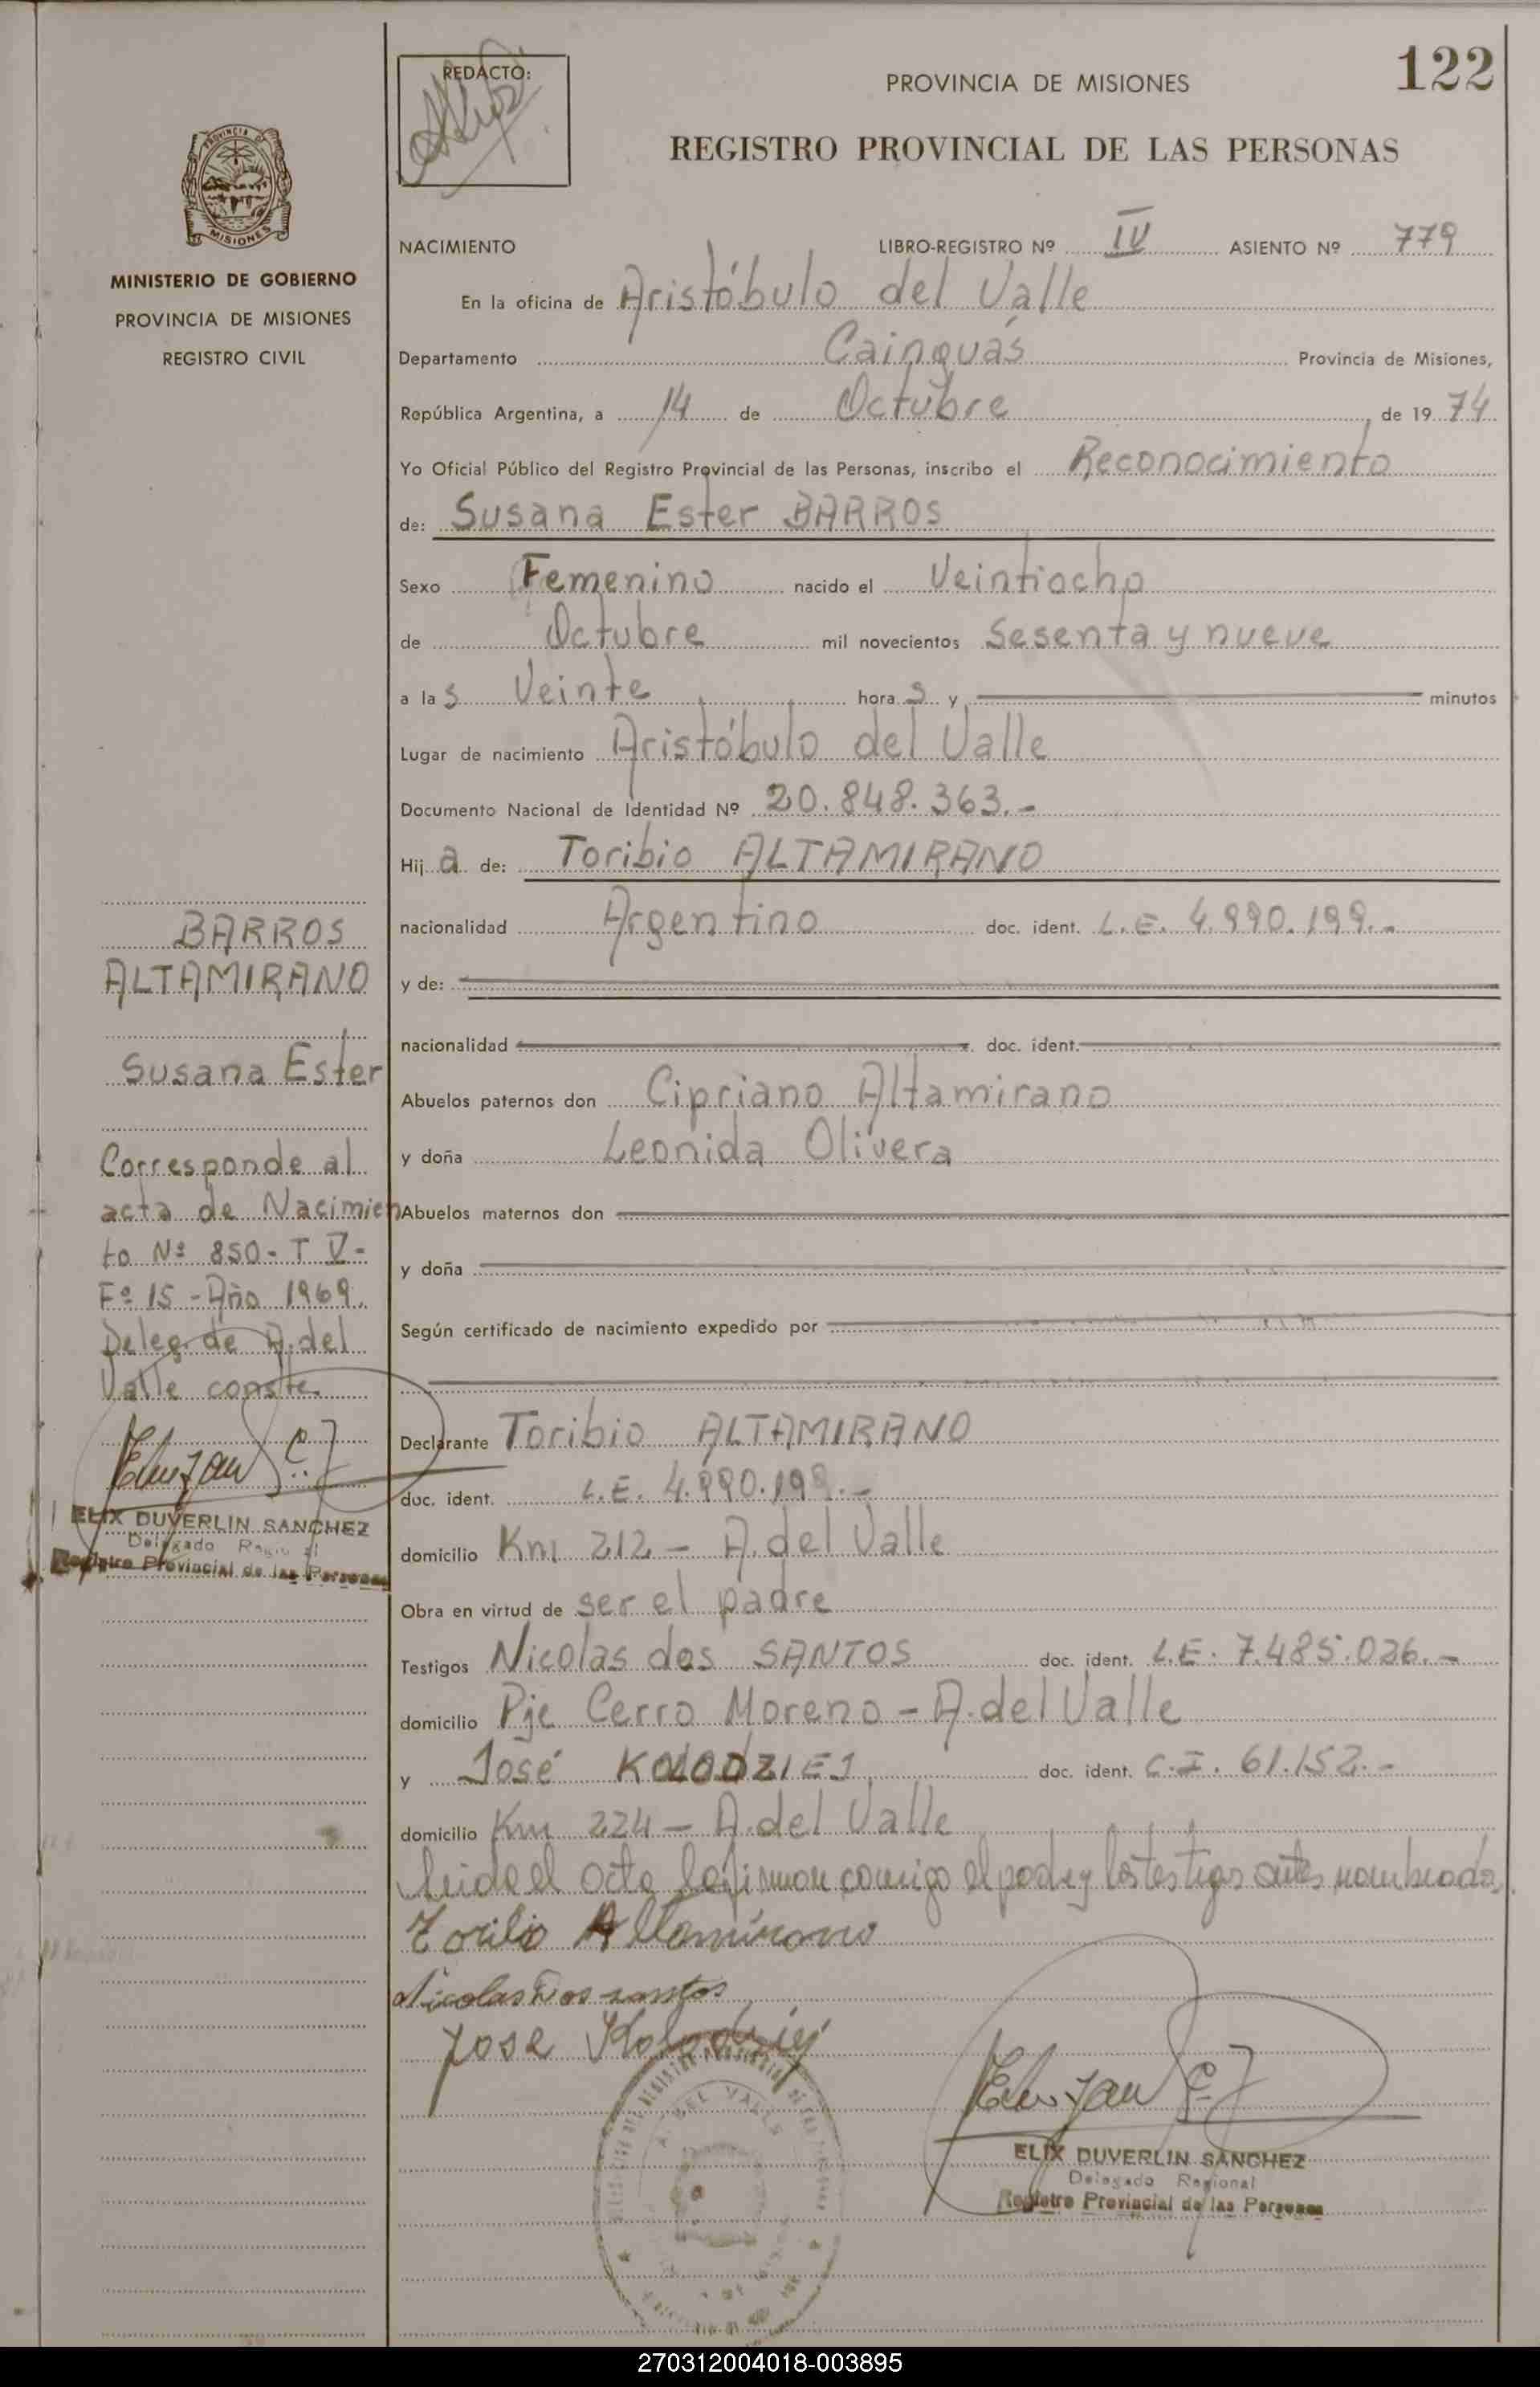 REDACTO:
PROVINCIA DE MISIONES
122
REGISTRO PROVINCIAL DE LAS PERSONAS
PROVINCIA DE
MISIONES
MINISTERIO DE GOBIERNO
PROVINCIA DE MISIONES
REGISTRO CIVIL
NACIMIENTO LIBRO-REGISTRO Nº IV ASIENTO Nº 779
En la oficina de Aristóbulo del Valle
Departamento Cainguás Provincia de Misiones,
República Argentina, a 14 de Octubre de 1974
Yo Oficial Público del Registro Provincial de las Personas, inscribo el Reconocimiento
de: Susana Ester BARROS
Sexo Femenino nacido el Veintiocho
de Octubre mil novecientos Sesenta y nueve
a las Veinte horas y minutos
Lugar de nacimiento Aristóbulo del Valle
Documento Nacional de Identidad Nº 20.848.363.-
Hija de: Toribio ALTAMIRANO
nacionalidad Argentino doc. ident. L.E. 4.990.199.-
y de:
nacionalidad doc. ident.
Abuelos paternos don Cipriano Altamirano
y doña Leonida Olivera
Abuelos maternos don
y doña
Según certificado de nacimiento expedido por
Declarante Toribio ALTAMIRANO
doc. ident. L.E. 4.990.199.-
domicilio Km 212 - A. del Valle
Obra en virtud de ser el padre
Testigos Nicolas dos SANTOS doc. ident. L.E. 7.485.026.-
domicilio Pje Cerro Moreno - A. del Valle
y José KOLODZIEJ doc. ident. C.I. 61.152.-
domicilio Km 224 - A. del Valle
Leida el acta la firman conmigo el padre y los testigos antes nombrados.
Toribio Altamirano
Nicolas Dos santos
Jose Kolodziej
ELIX DUVERLIN SANCHEZ
Delegado Regional
Registro Provincial de las Personas
BARROS
ALTAMIRANO
Susana Ester
Corresponde al
acta de Nacimien
to Nº 850 - T V -
Fº 15 - Año 1969.
Deleg. de A. del
Valle conste.
ELIX DUVERLIN SANCHEZ
Delegado Regional
Registro Provincial de las Personas
DEL VALLE
270312004018-003895